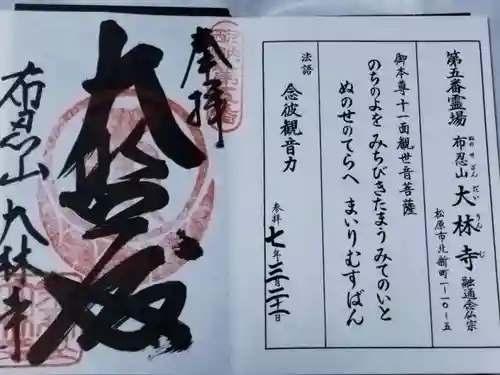 第五番霊場 布忍山 大林寺 融通念仏宗
ぬのせざん だいりんじ
松原市北新町一ー一〇ー五
御本尊十一面観世音菩薩
のちのよを みちびきたまう みてのいと
ぬのせのてらへ まいりむすばん
法語 念彼観音力
参拝 七年三月二十一日
奉拝
大悲殿
布忍山 大林寺